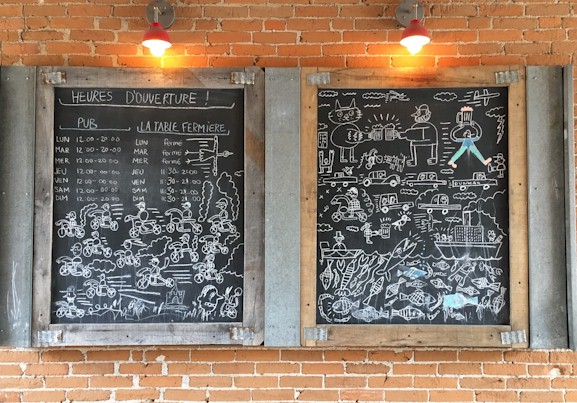 HEURES D'OUVERTURE !
PUB
LA TABLE FERMIÈRE
LUN 12:00-20:00 LUN fermé
MAR 12:00-20:00 MAR fermé
MER 12:00-20:00 MER fermé
JEU 12:00-20:00 JEU 11:30-21:00
VEN 12:00-20:00 VEN 11:30-21:00
SAM 12:00-20:00 SAM 11:30-21:00
DIM 12:00-20:00 DIM